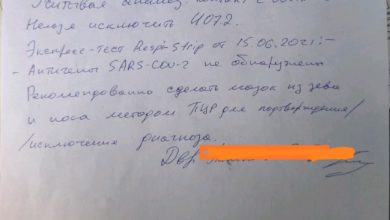 контакт с
Нельзя исключить U07.2.
Экспресс-тест Respi-Strip от 15.06.2021:-
- Антигены SARS-COV-2 не обнаружены
Рекомендованно сделать мазок из зева
и носа методом ПЦР для подтверждения/
/исключения диагноза.